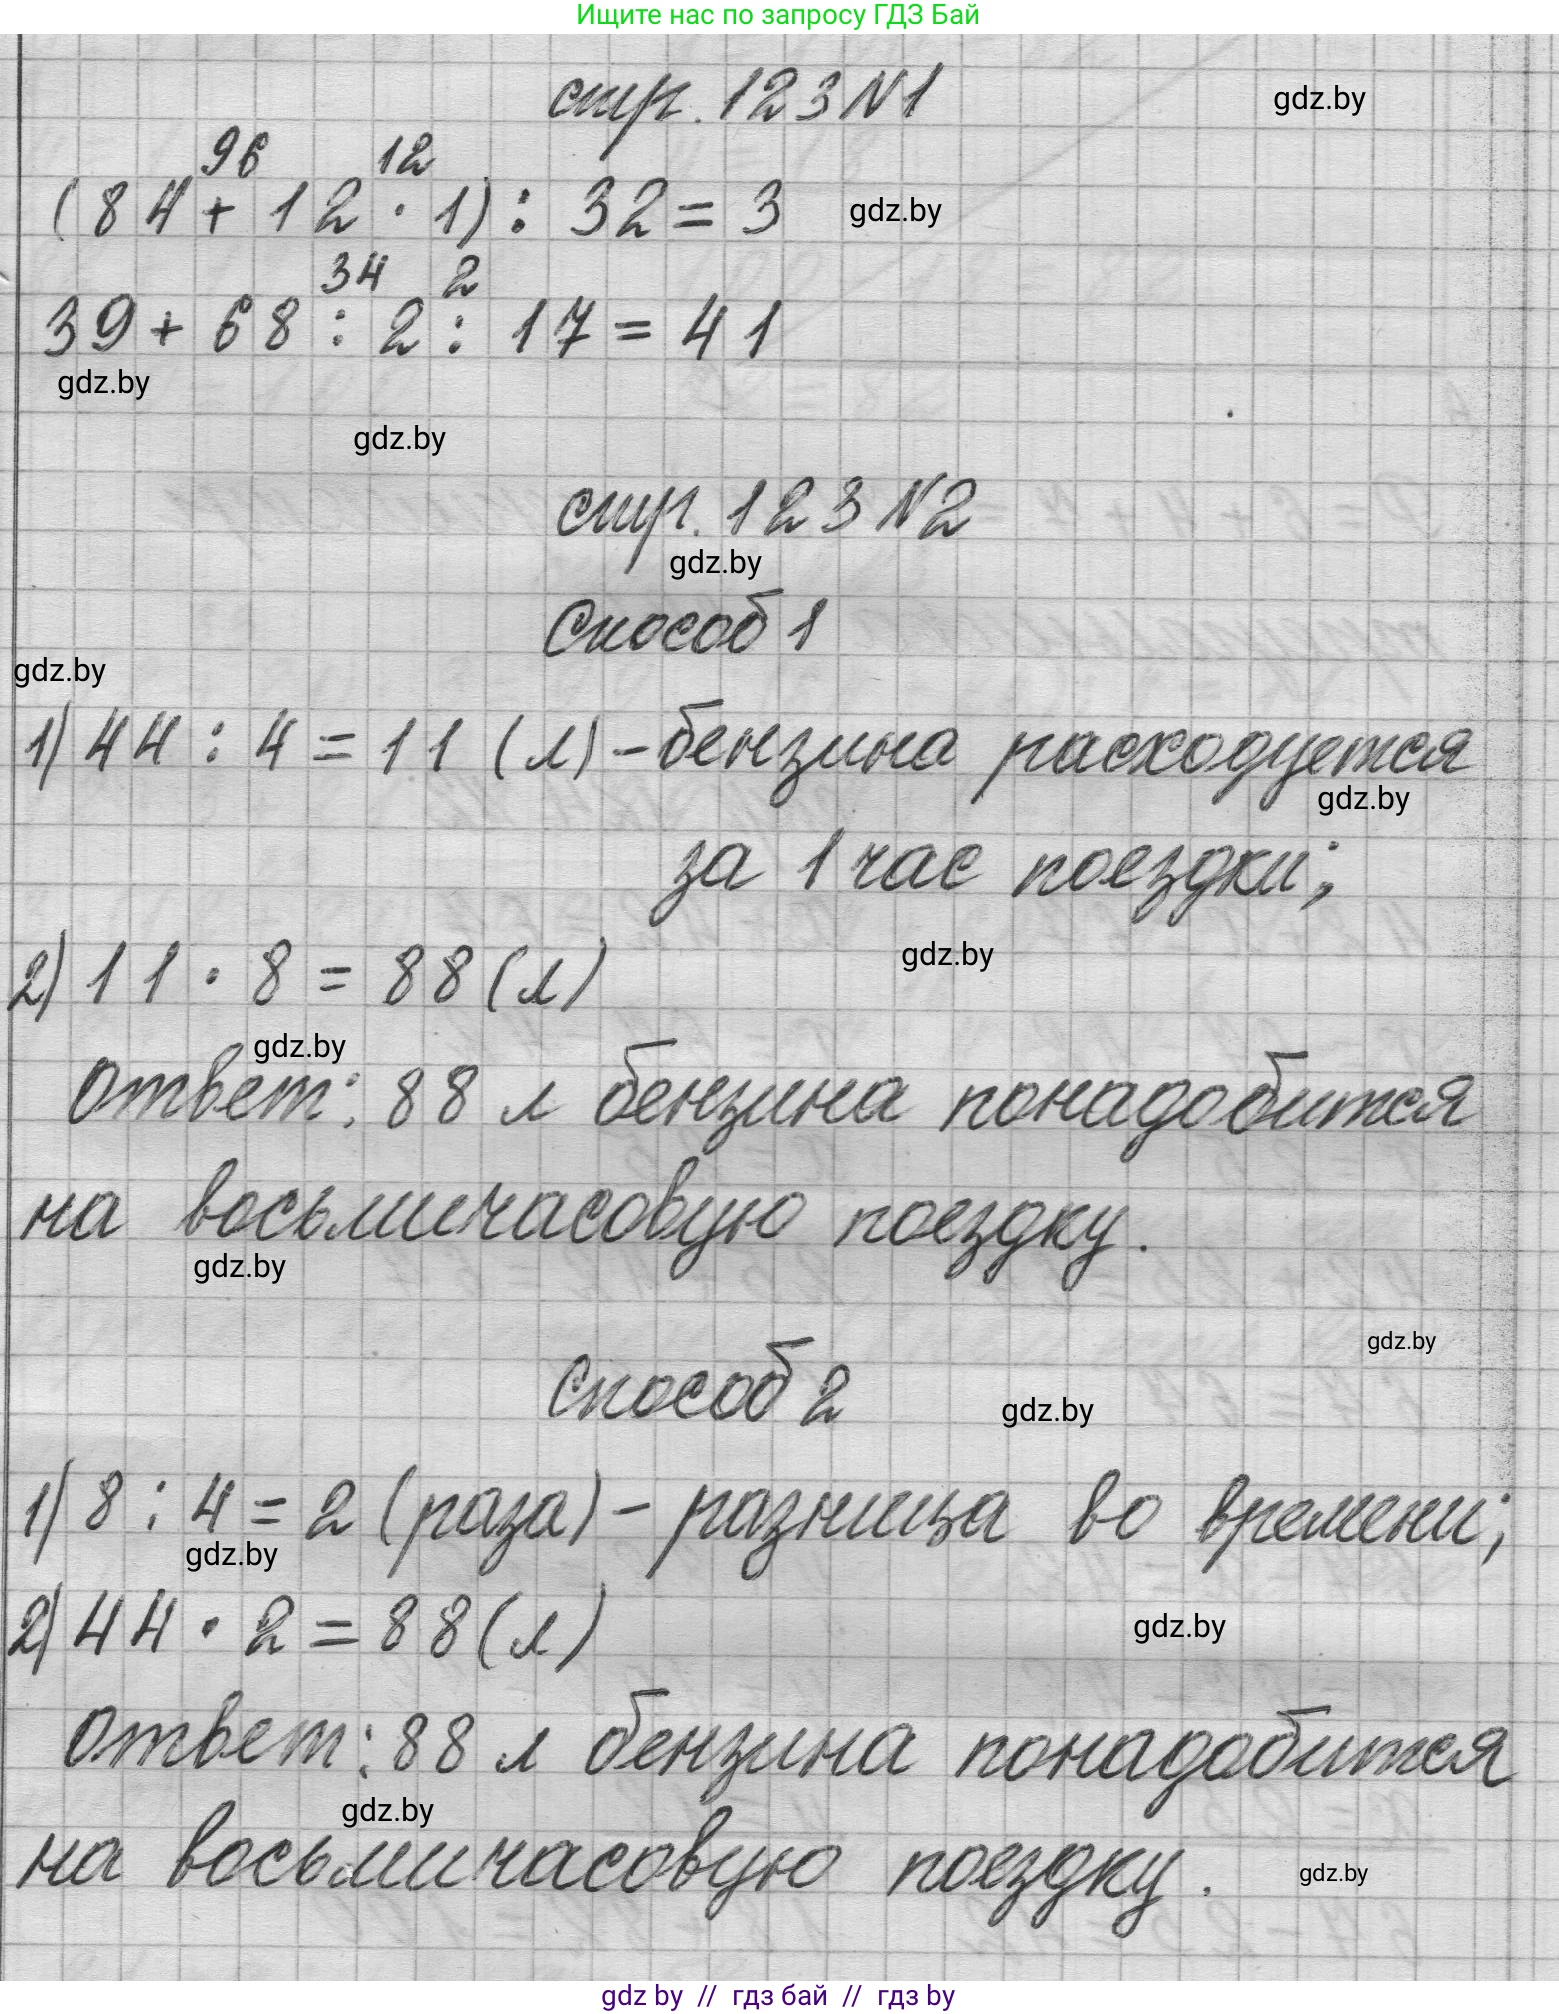 Ищите нас по запросу ГДЗ Бай
стр. 123 N1
gdz.by
96 12
(84 + 12 · 1) : 32 = 3
gdz.by
34 2
39 + 68 : 2 : 17 = 41
gdz.by
gdz.by
стр. 123 N2
gdz.by
Способ 1
gdz.by
1) 44 : 4 = 11 (л) - бензина расходуется
gdz.by
за 1 час поездки;
2) 11 · 8 = 88 (л)
gdz.by
gdz.by
Ответ: 88 л бензина понадобится
на восьмичасовую поездку.
gdz.by
gdz.by
Способ 2
gdz.by
1) 8 : 4 = 2 (раза) - разница во времени;
gdz.by
2) 44 · 2 = 88 (л)
gdz.by
Ответ: 88 л бензина понадобится
gdz.by
на восьмичасовую поездку.
gdz.by
gdz by // гдз бай // гдз by